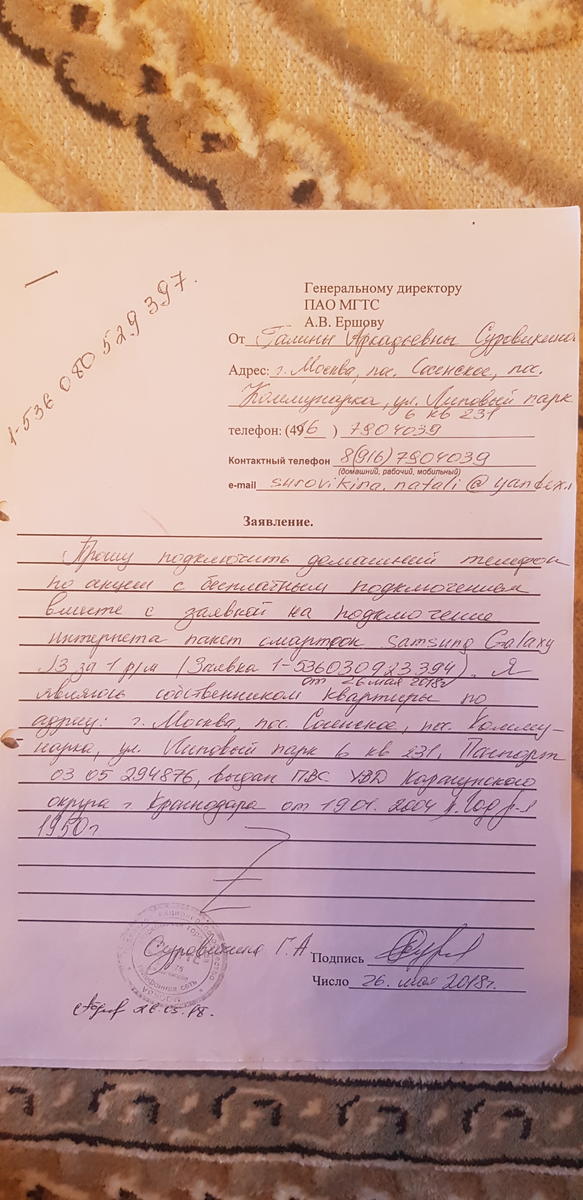 1-536 080 529 397.
Генеральному директору
ПАО МГТС
А.В. Ершову
От Галины Аркадьевны Суровикиной
Адрес: г. Москва, пос. Сосенское, пос.
Коммунарка, ул. Липовый парк
6 кв 231
телефон: (496) 7904039
Контактный телефон 8(916)7904039
(домашний, рабочий, мобильный)
e-mail surovikina.natali@yandex.
Заявление.
Прошу подключить домашний телефон
по акции с бесплатным подключением
вместе с заявкой на подключение
интернета пакет смартфон Samsung Galaxy
J3 за 1 р/м (Заявка 1-536030923394). Я
от 26 мая 2018г
являюсь собственником квартиры по
адресу: г. Москва, пос. Сосенское, пос. Комму-
нарка, ул. Липовый парк 6 кв 231. Паспорт
03 05 294876, выдан ПВС УВД Карасунского
округа г. Краснодара от 19.01.2004 г. год р-я
1950г
Суровикина Г.А Подпись
Число 26. мая 2018г.
28.05.18.